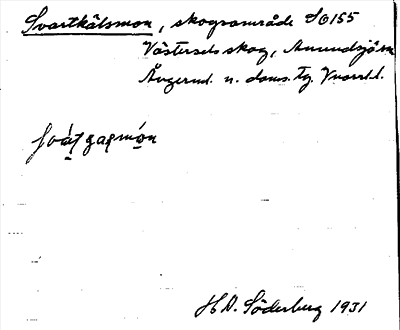 Svartkälsmon, skogsområde S/G 155
Västersels skog, Amundsjön
Ångerml. n. doms. tg. Vnorrl. l.
H. D. Söderberg 1931